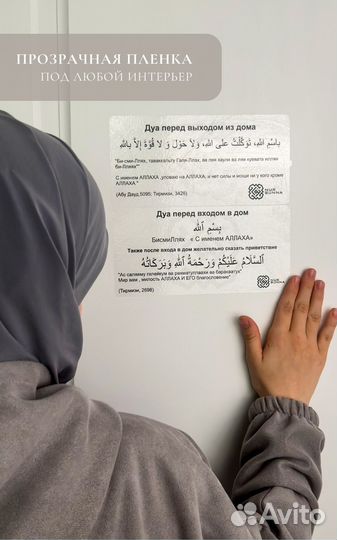 ПРОЗРАЧНАЯ ПЛЕНКА
ПОД ЛЮБОЙ ИНТЕРЬЕР
Дуа перед выходом из дома
بِاسْمِ اللهِ، تَوَكَّلْتُ عَلَى اللهِ، وَلاَ حَوْلَ وَ لا قُوَّةَ إِلاَّ بِاللهِ
"Би-сми-Ллях, таваккяльту Галя-Ллах, ва ляя хаули ва ляя куввата илляя би-Лляях"
С именем АЛЛАХА ,уповаю на АЛЛАХА, и нет силы и мощи ни у кого кроме АЛЛАХА "
(Абу Дауд,5095; Тирмизи, 3426)
NUR SUNNA
Дуа перед входом в дом
بِسْمِ اللهِ
БисмиЛлях « С именем АЛЛАХА»
Также после входа в дом желательно сказать приветствие
اَلسَّلَامُ عَلَيْكُمْ وَرَحْمَةُ اللهِ وَبَرَكَاتُهُ
"Ас саляму галейкум ва рахматуллахи ва баракатух"
Мир вам , милость АЛЛАХА И ЕГО благословение"
(Тирмизи, 2698)
NUR SUNNA
Avito